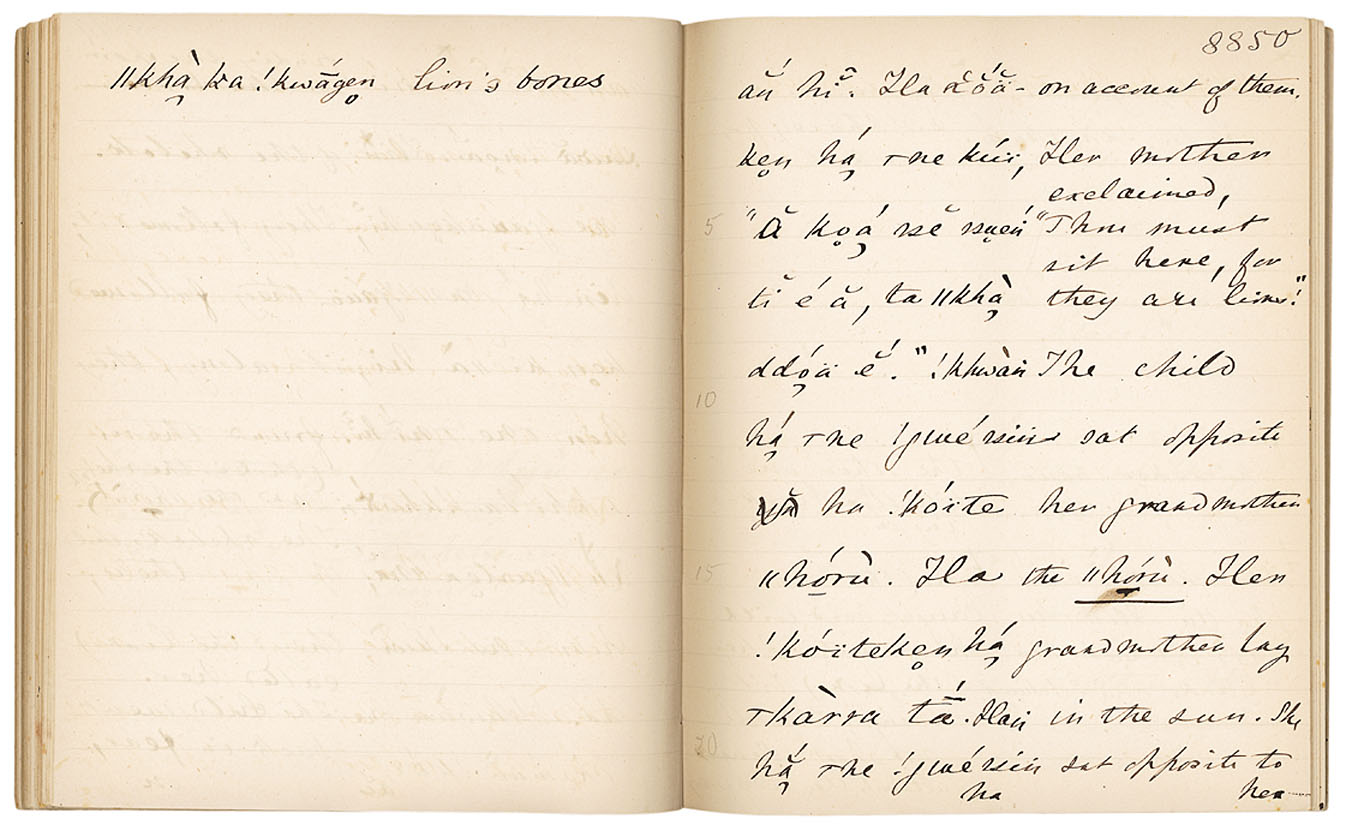 ǁkhą̀ ka !kwā́gen̥ lion's bones
8850
ău hĭ. Ha ó̆ä- on account of them.
ken̥ hą́ ⊤ne kúï, Her mother
exclaimed,
5 "Ă ko̜á sĕ
"Thou must
sit here, for
tĭ é ă, ta ǁkhą̀ they are lions!"
ddó̜ä é̆." !khwàn The child
10
hą́ ⊤ne !gwé sïn sat opposite
ha !kóïte her grandmother
15 ǁhórù. Ha the ǁhórù. Her
!kóïteken̥ hą́ grandmother lay
⊤kàrra tā́. Han in the sun. She
20
hą̆́ ⊤ne !gwé sïn sat opposite to
ha her